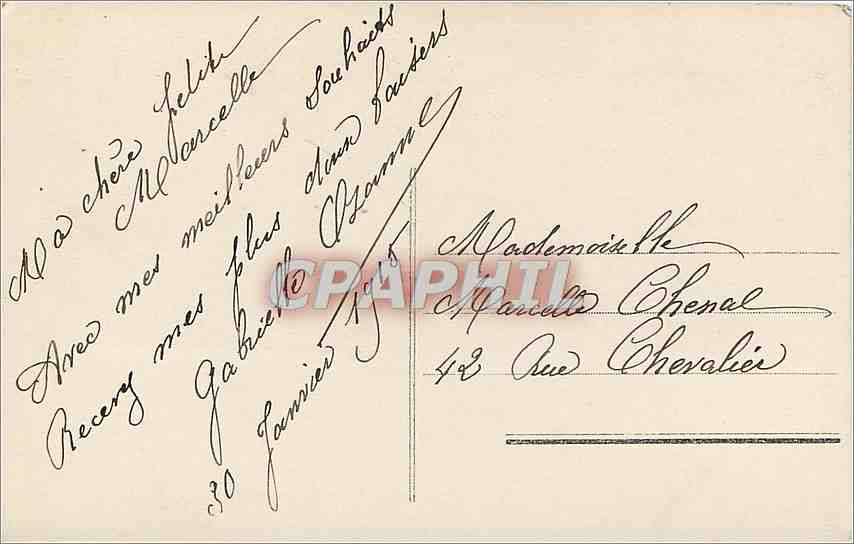 Ma chère petite
Marcelle
Avec mes meilleurs souhaits
Recevez mes plus doux baisers
Gabrielle Ozanne
30 Janvier 1915
Mademoiselle
Marcelle Chenal
42 Rue Chevalier
CPAPHIL